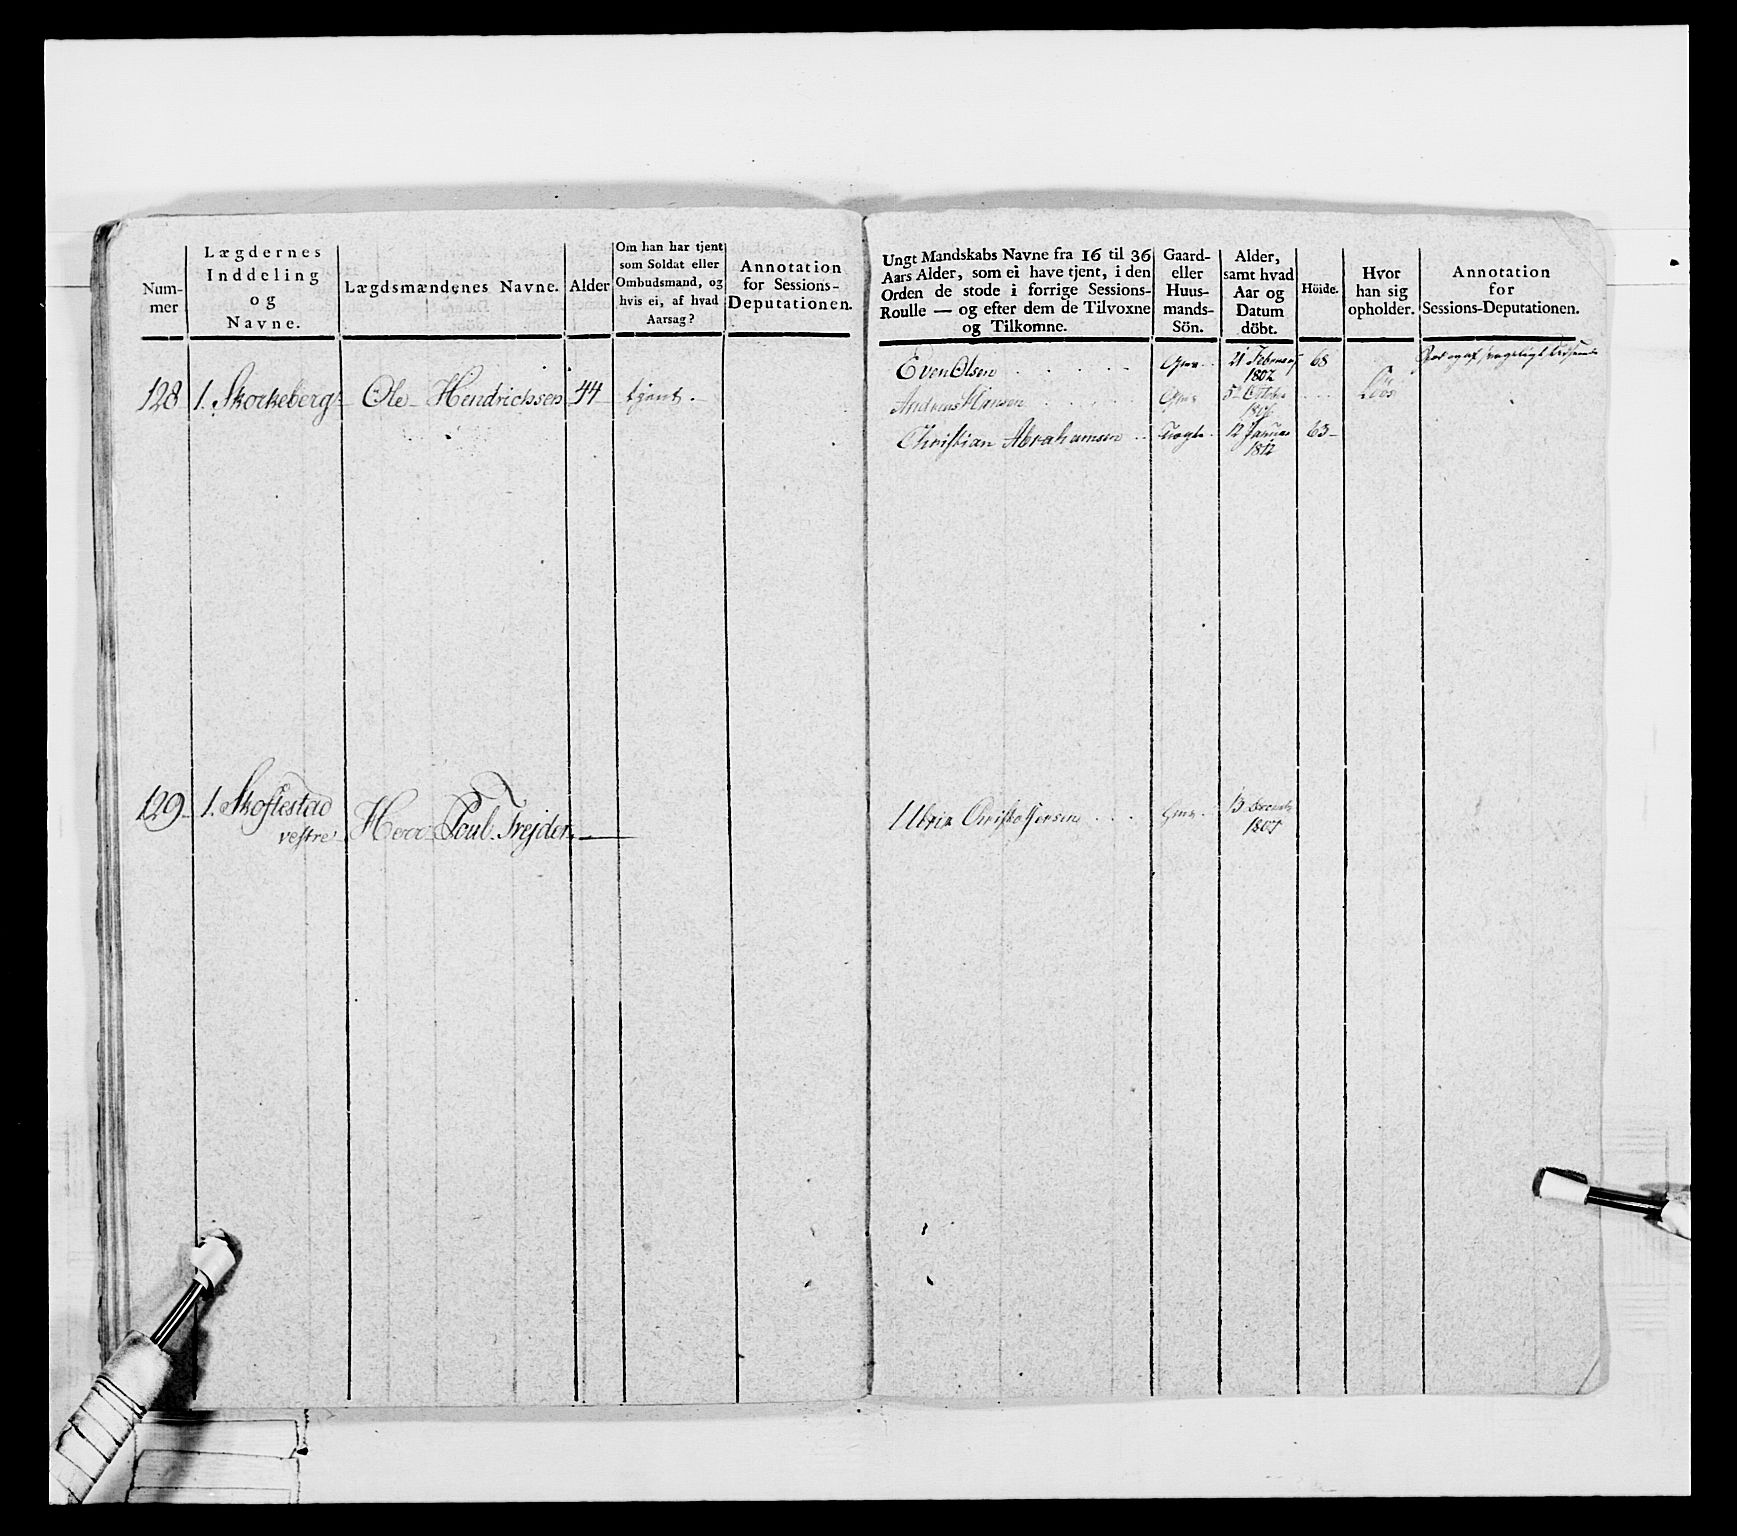 Num-
mer
Lægdernes
Inddeling
og
Navne.
Lægdsmændenes Navne.
Alder
Om han har tjent
som Soldat eller
Ombudsmand, og
hvis ei, af hvad
Aarsag?
Annotation
for Sessions-
Deputationen.
128 1. Skockeberg Ole Hendrichsen 44 tjent.
129 1. Skoftestad
vestre Herr Poul Trejder
Ungt Mandskabs Navne fra 16 til 36
Aars Alder, som ei have tjent, i den
Orden de stode i forrige Sessions-
Roulle — og efter dem de Tilvoxne
og Tilkomne.
Gaard-
eller
Huus-
mands-
Sön.
Alder,
samt hvad
Aar og
Datum
döbt.
Höide.
Hvor
han sig
opholder.
Annotation
for
Sessions-Deputationen.
Even Olsen 21 Februar 68
1802
Andreas Hansen 5 October
1806
Christian Abrahamsen 12 Januar 63
1812
Christoffersen 13
1807